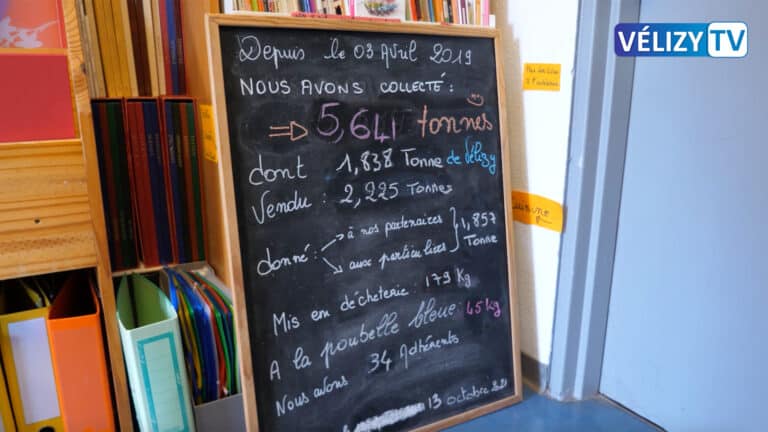 VÉLIZY TV
Depuis le 03 Avril 2019
NOUS AVONS COLLECTÉ :
⇒ 5,641 tonnes
dont 1,838 Tonne de Vélizy
Vendu : 2,225 Tonnes
donné : → à nos partenaires
→ aux particuliers
1,857 Tonne
Mis en déchèterie : 179 Kg
A la poubelle bleue : 45 kg
Nous avons 34 Adhérents
13 octobre 2021